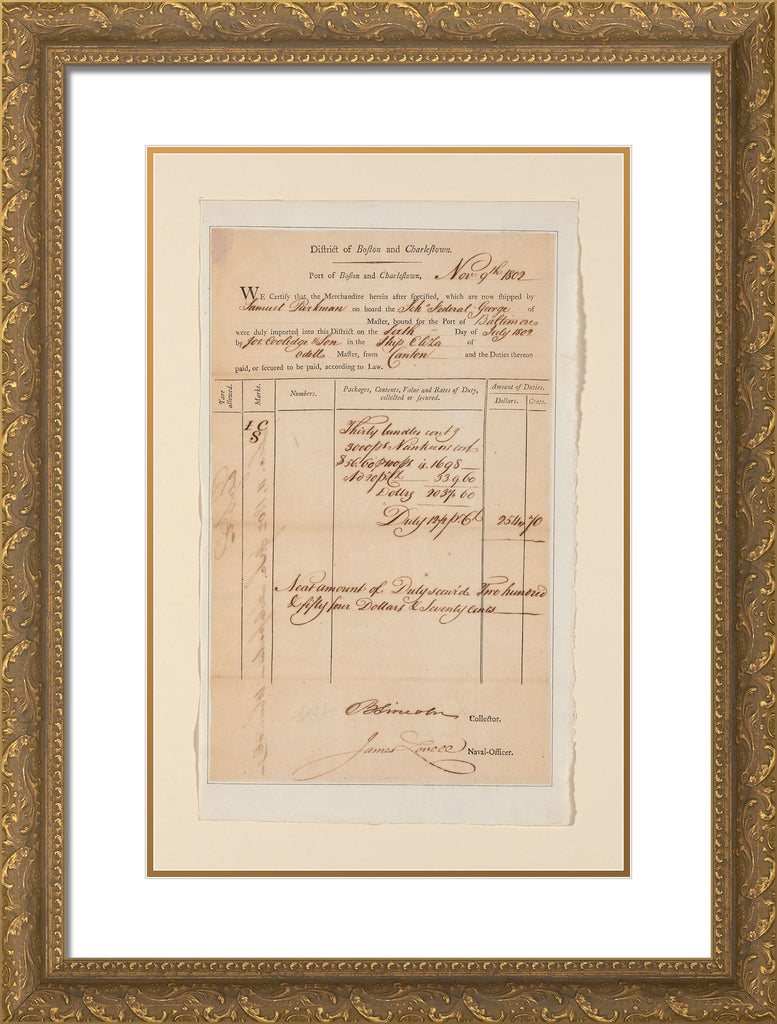 District of Boston and Charlestown.
Port of Boston and Charlestown, Nov 9th 1802
WE Certify that the Merchandize herein after specified, which are now shipped by
Samuel Parkman on board the Schr Federal George of
Master, bound for the Port of Baltimore
were duly imported into this District on the Sixth Day of July 1802
by Jos. Coolidge & Son in the Ship Eliza of
Odell Master, from Canton and the Duties thereon
paid, or secured to be paid, according to Law.
Tare allowed.
Marks.
Numbers.
Packages, Contents, Value and Rates of Duty, collected or secured.
Amount of Duties.
Dollars. Cents.
I C
S
Thirty bundles contg
3000 ps Nankeens cost
$56.60 100ps is 1698
Ad 20 pr Ct 339.60
Dollrs 2037.60
Duty 12½ pr Ct 254 70
Neat amount of Duty secur'd Two hundred
& fifty four Dollars & Seventy cents
B Lincoln Collector.
James Lovell Naval-Officer.